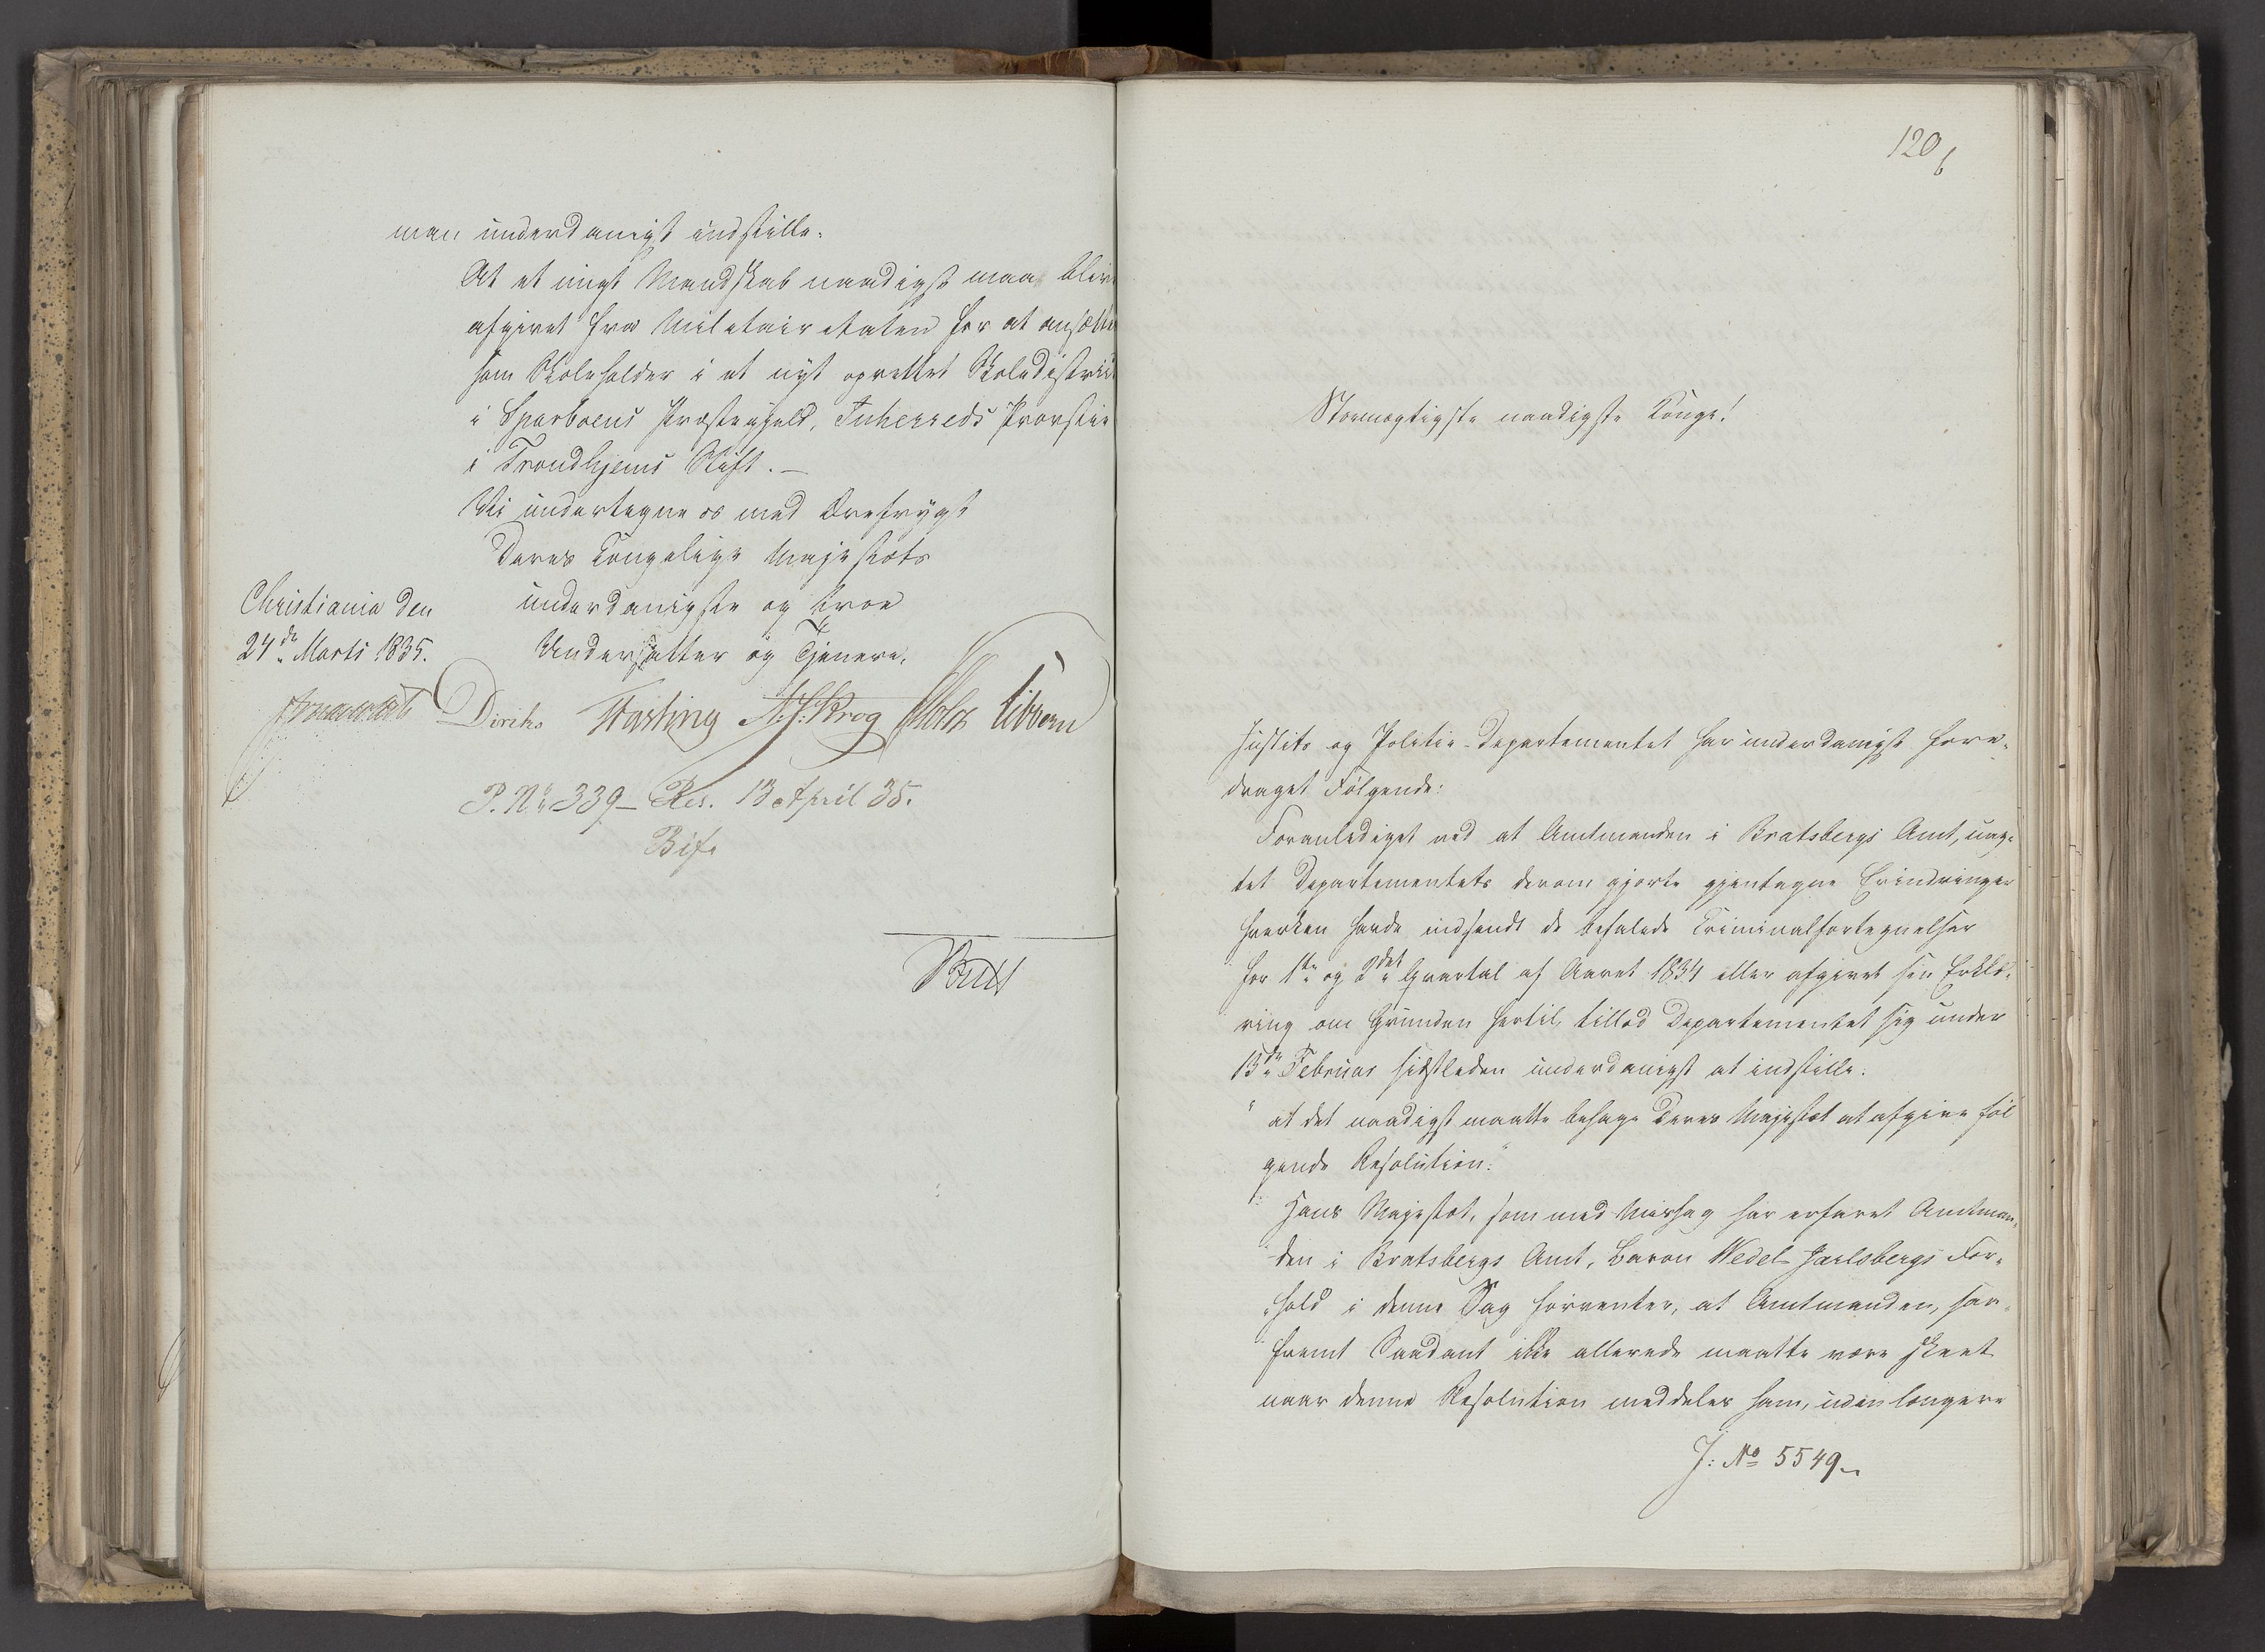 man underdanigst indstille:
At et ungt Mandskab naadigst maa blive
afgivet fra Militairetaten for at ansættes
som Skoleholder i et nyt oprettet Skoledistrict
i Sparboens Præstegjeld, Inherreds Provstie
i Trondhjems Stift. —
Vi undertegne os med Ærefrygt
Deres Kongelige Majestæts
underdanigste og troe
Undersatter og Tjenere.
Christiania den
24de Marts 1835.
Diriks Fasting N. J. Krog Holst Vibe
P. No 339 — Res. 13 April 35.
Bif.
120 b
Stormægtigste naadigste Konge!
Justits og Politie-Departementet har underdanigst fore-
draget Følgende:
Foranlediget ved at Amtmanden i Bratsbergs Amt, uag-
tet Departementets derom gjorte gjentagne Erindringer
hverken havde indsendt de befalede Criminalfortegnelser
for 1ste og 2det Qvartal af Aaret 1834 eller afgivet sin Erklæ-
ring om Grunden hertil, tillod Departementet sig under
13de Februar sidstleden underdanigst at indstille:
"at det naadigst maatte behage Deres Majestæt at afgive føl
gende Resolution:"
"Hans Majestæt, som med Mishag har erfaret Amtman-
den i Bratsbergs Amt, Baron Wedel-Jarlsbergs For-
hold i denne Sag forventer, at Amtmanden, saa-
fremt Saadant ikke allerede maatte være skeet
naar denne Resolution meddeles ham, uden længere
J: No 5549 —